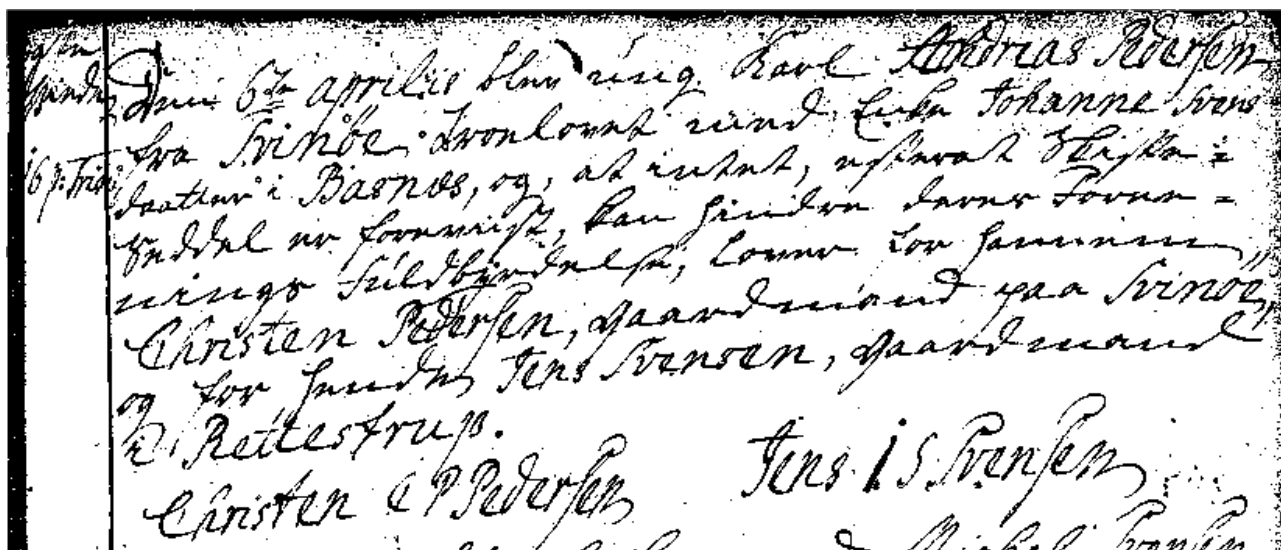 Den 6te aprilis blev ung Karl Andreas Pedersen
fra Svinöe trovlovet med Enke Johanne Svens
16 p: Trin:
daatter i Basnæs, og, at intet, efterat Skifte=
Seddel er foreviist, kan hindre deres Foree=
nings Fuldbyrdelse, lover for hannem
Christen Pedersen, gaardmand paa Svinöe,
og for hende Jens Svensen, gaardmand
i Rettestrup.
Christen C P Pedersen Jens I S Svensen